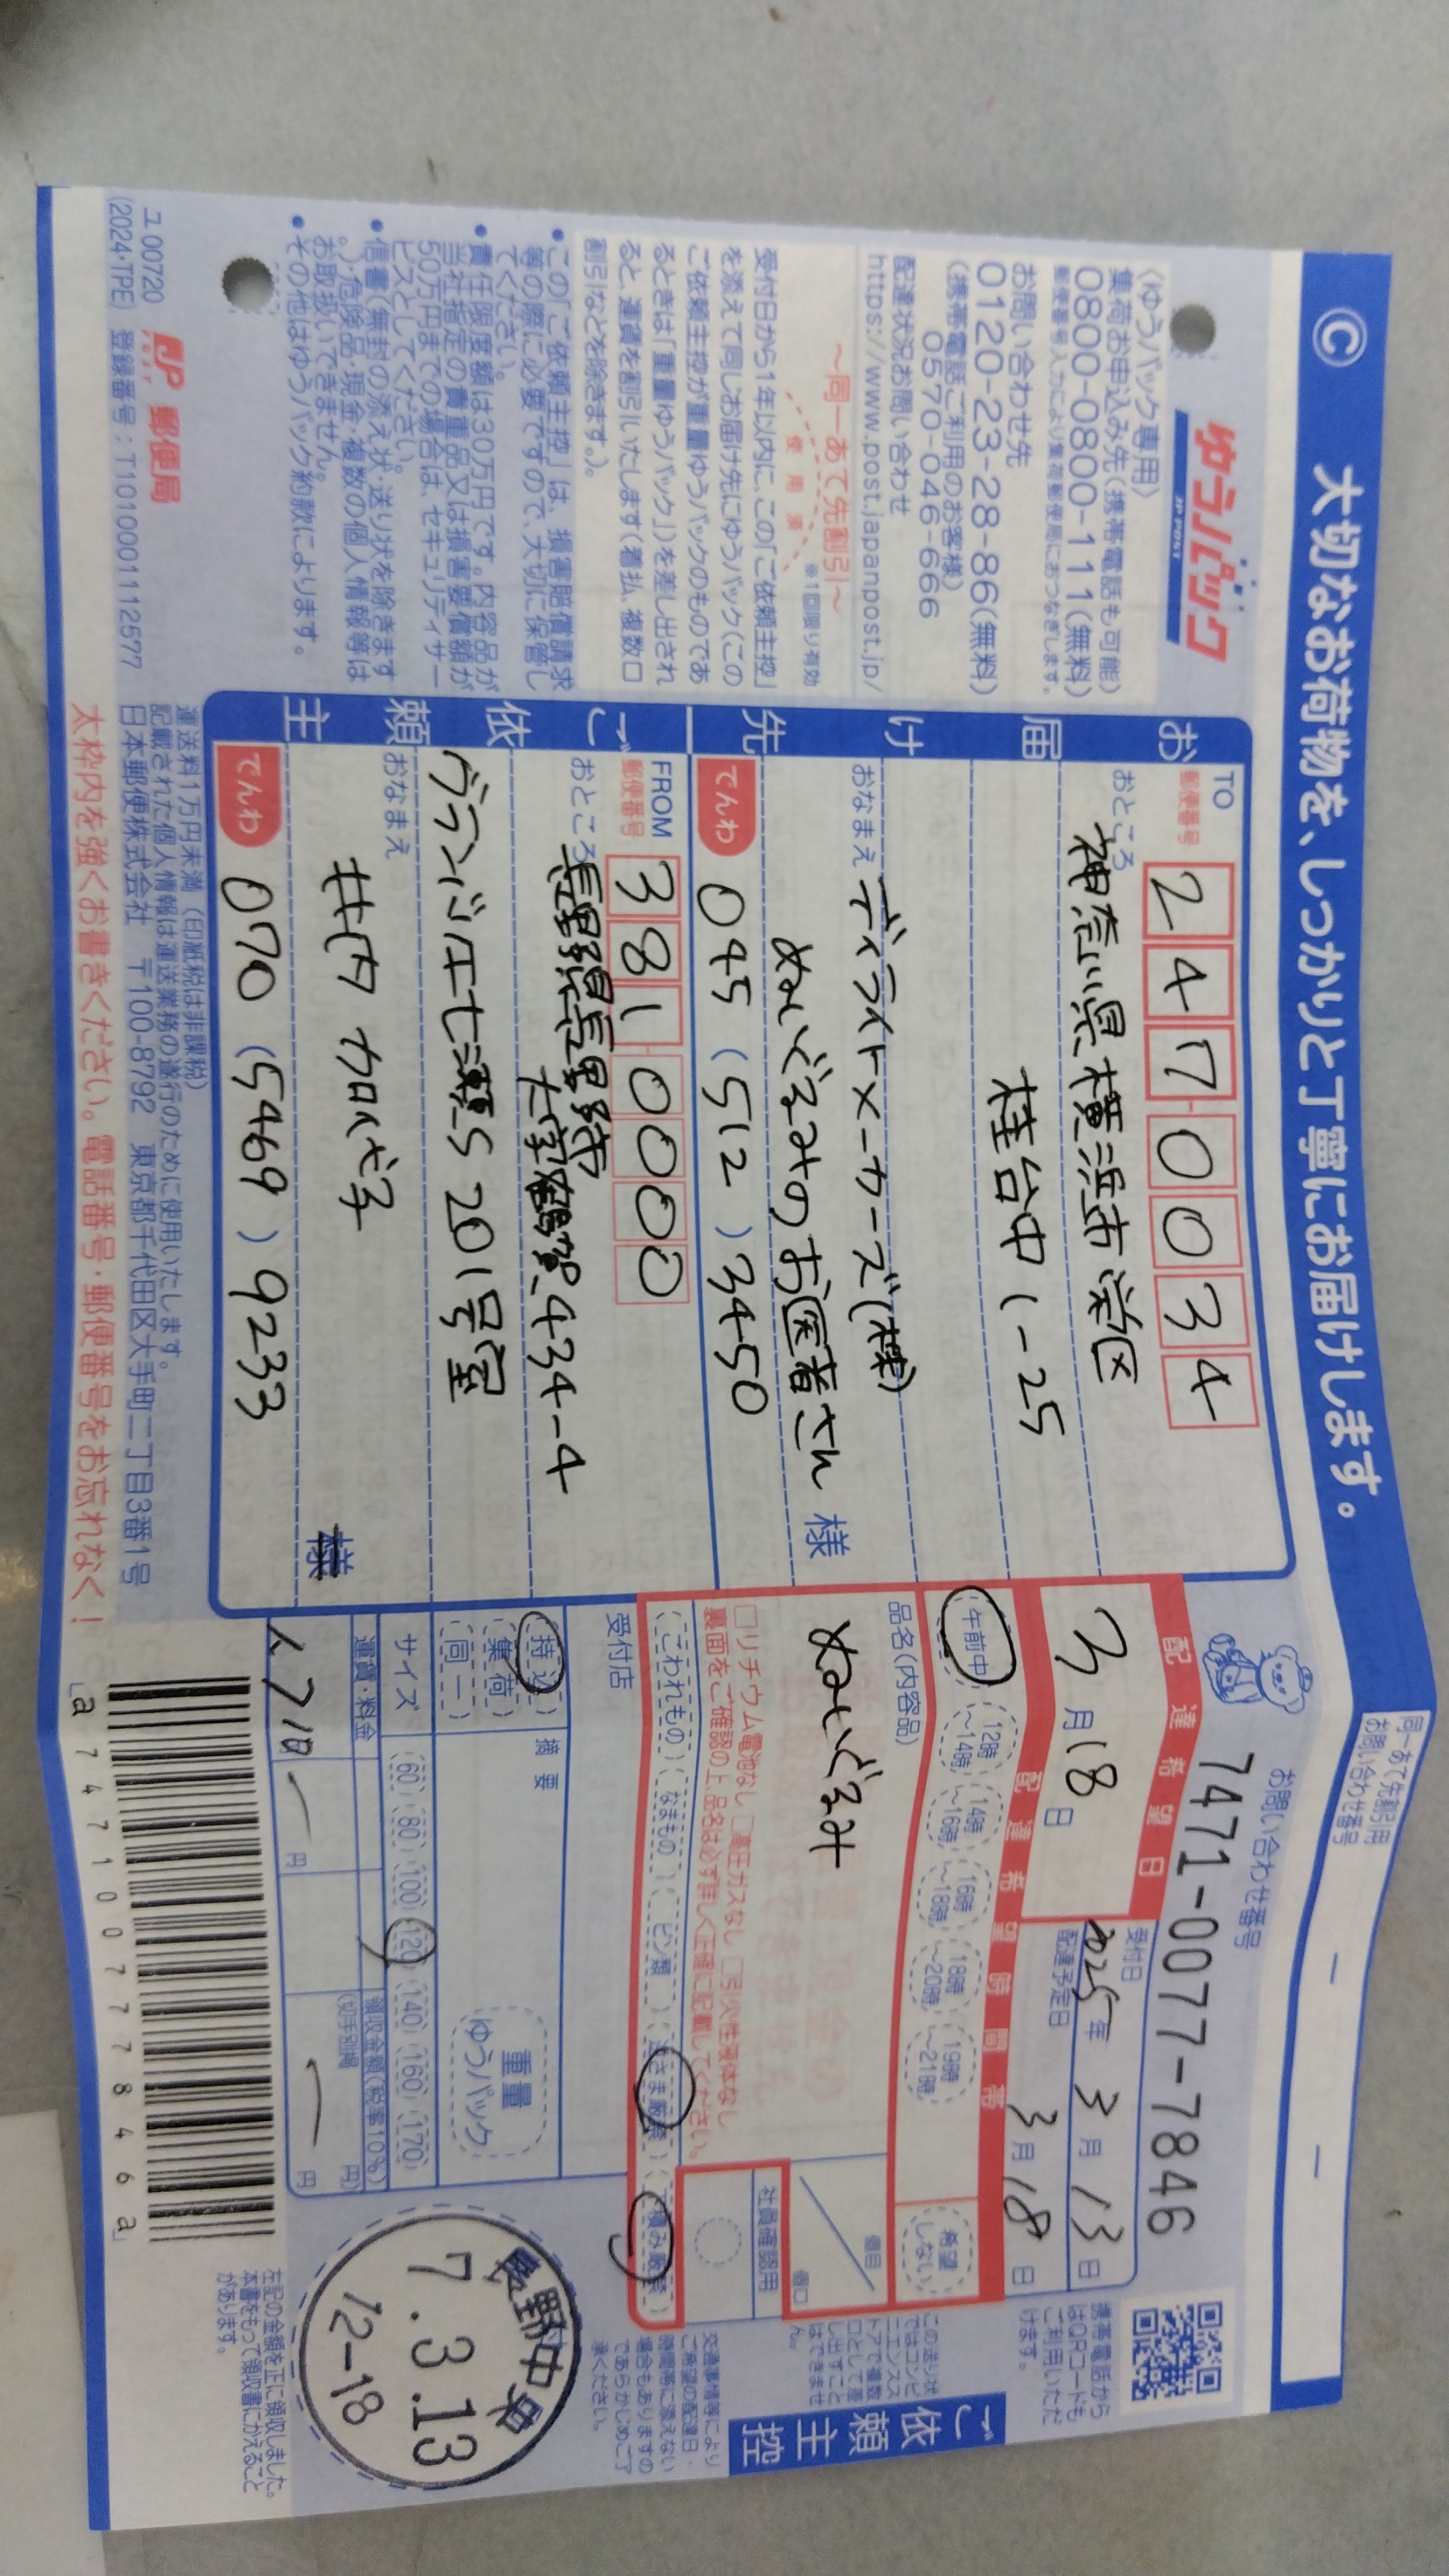 Ⓒ 大切なお荷物を、しっかりと丁寧にお届けします。
同一あて先割引用
お問い合わせ番号
ゆうパック
JP POST
〈ゆうパック専用〉
集荷お申込み先(携帯電話も可能)
0800-0800-111(無料)
郵便番号入力により集荷郵便局におつなぎします。
お問い合わせ先
0120-23-28-86(無料)
(携帯電話ご利用のお客様)
0570-046-666
配達状況お問い合わせ
https://www.post.japanpost.jp/
～同一あて先割引～
使用済
※1回限り有効
受付日から1年以内に、この「ご依頼主控」
を添えて同じお届け先にゆうパック(この
ご依頼主控が重量ゆうパックのものであ
るときは「重量ゆうパック」)を差し出され
ると、運賃を割引いたします(着払、複数口
割引などを除きます。)。
• この「ご依頼主控」は、損害賠償請求
等の際に必要ですので、大切に保管し
てください。
• 責任限度額は30万円です。内容品が
当社指定の貴重品又は損害要償額が
50万円までの場合は、セキュリティサー
ビスとしてください。
• 信書(無封の添え状・送り状を除きます
。)・危険品・現金・複数の個人情報等は
お取扱いできません。
• その他はゆうパック約款によります。
お届け先
TO
郵便番号
247-0034
おところ
神奈川県横浜市栄区
桂台中1-25
おなまえ
ディライトメーカーズ(株)
ぬいぐるみのお医者さん 様
でんわ
045 (512) 3450
ご依頼主
FROM
郵便番号
381-0000
おところ
長野県長野市
大字鶴賀434-4
グランジェ七瀬S 201号室
おなまえ
井内 加代子
様
でんわ
070 (5469) 9233
お問い合わせ番号
7471-0077-7846
配達希望日
3月18日
受付日
2025年 3月13日
配達予定日
3月18日
配達希望時間帯
午前中
12時～14時
14時～16時
16時～18時
18時～20時
19時～21時
希望しない
品名(内容品)
ぬいぐるみ
個目
個口
□リチウム電池なし □高圧ガスなし □引火性液体なし
裏面をご確認の上、品名は必ず詳しく正確に記載してください。
社員確認用
こわれもの
なまもの
ビン類
逆さま厳禁
下積み厳禁
受付店
持込
集荷
同一
摘要
重量
ゆうパック
サイズ
60 80 100 120 140 160 170
運賃・料金
円
領収金額(税率10%)
(切手別納 円)
円
a747100777846a
長野中央
7.3.13
12-18
携帯電話から
はQRコードも
ご利用いただ
けます。
この送り状
ではコンビ
ニエンスス
トアで複数
口として差
し出すこと
はできませ
ん。
ご依頼主控
交通事情等により
ご希望の配達日・
時間帯に添えない
場合もありますの
であらかじめご了
承ください。
左記の金額を正に領収しました。
本書をもって領収書にかえること
があります。
運送料1万円未満 (印紙税は非課税)
記載された個人情報は運送業務の遂行のために使用いたします。
日本郵便株式会社 〒100-8792 東京都千代田区大手町二丁目3番1号
太枠内を強くお書きください。電話番号・郵便番号をお忘れなく！
ユ00720
(2024・TPE)
JP POST 郵便局
登録番号：T1010001112577